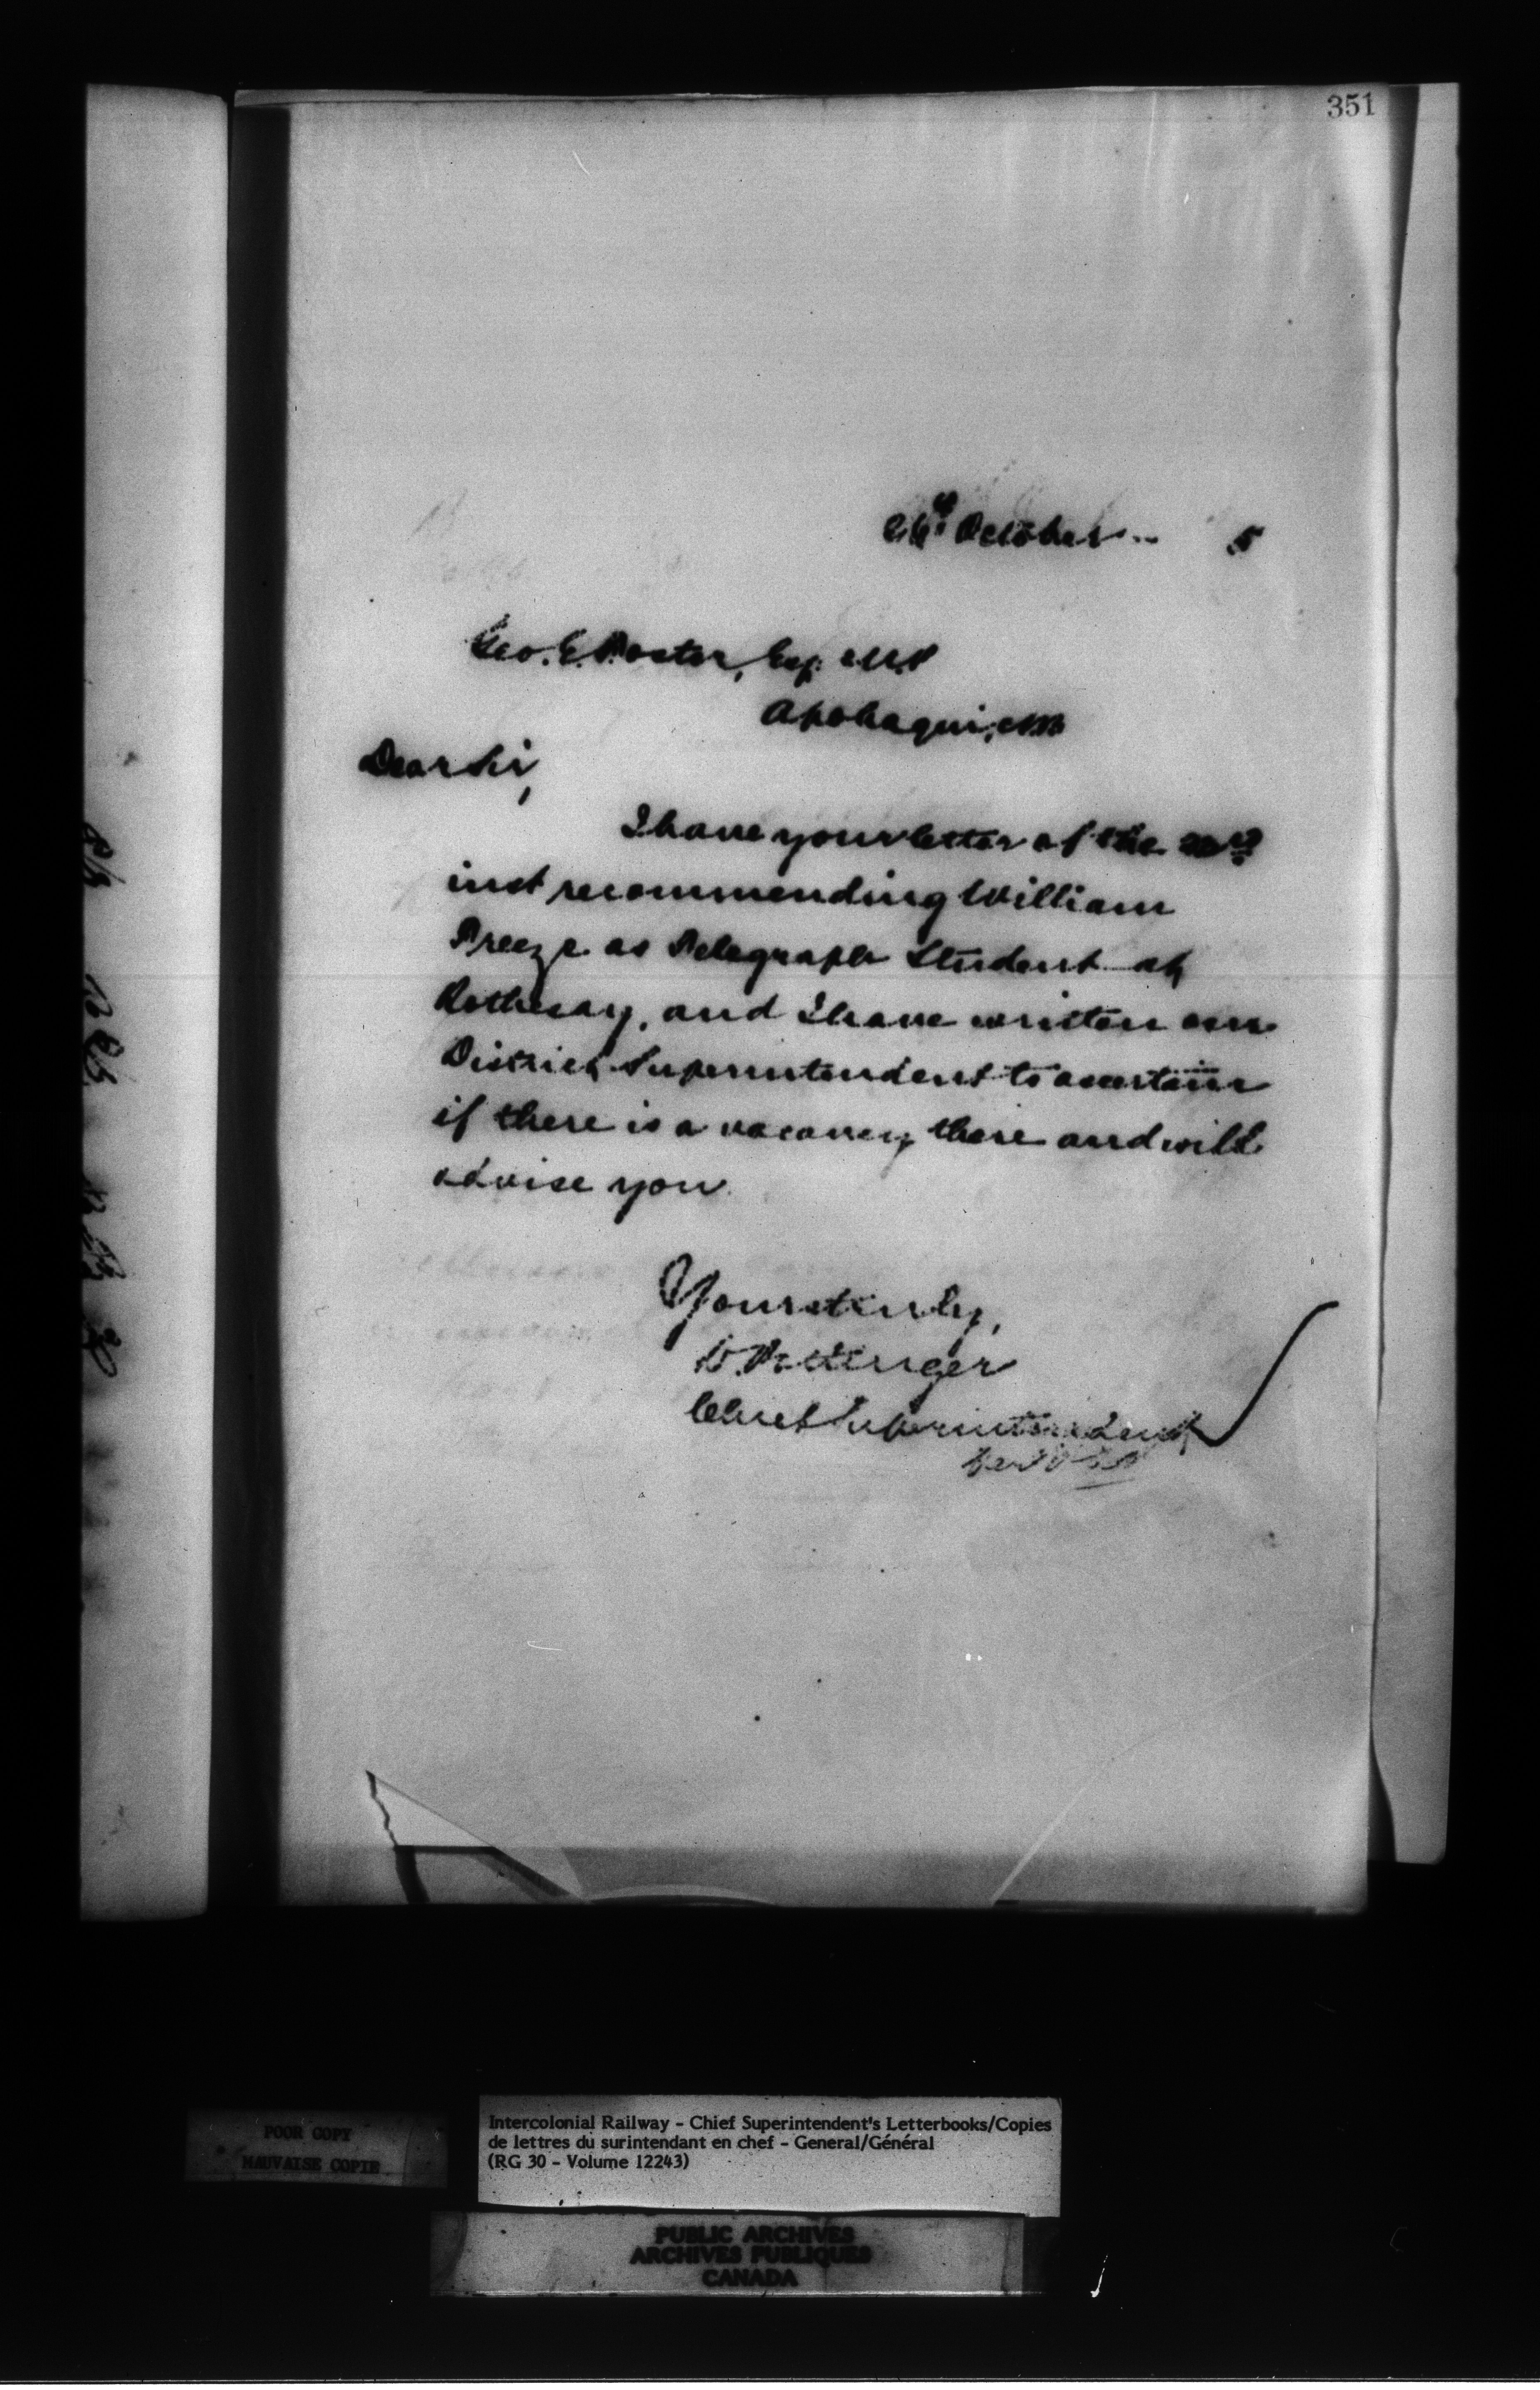 351
October 5
Geo. E. Foster, Esq. M.P
Apohaqui, N.B.
Dear Sir,
I have your letter of the
inst recommending William
Freeze as Telegraph Student at
Rothesay, and I have written our
District Superintendent to ascertain
if there is a vacancy there and will
advise you
Yours truly,
D. Pottinger
Chief Superintendent
POOR COPY
MAUVAISE COPIE
Intercolonial Railway - Chief Superintendent's Letterbooks/Copies
de lettres du surintendant en chef - General/Général
(RG 30 - Volume 12243)
PUBLIC ARCHIVES
ARCHIVES PUBLIQUES
CANADA